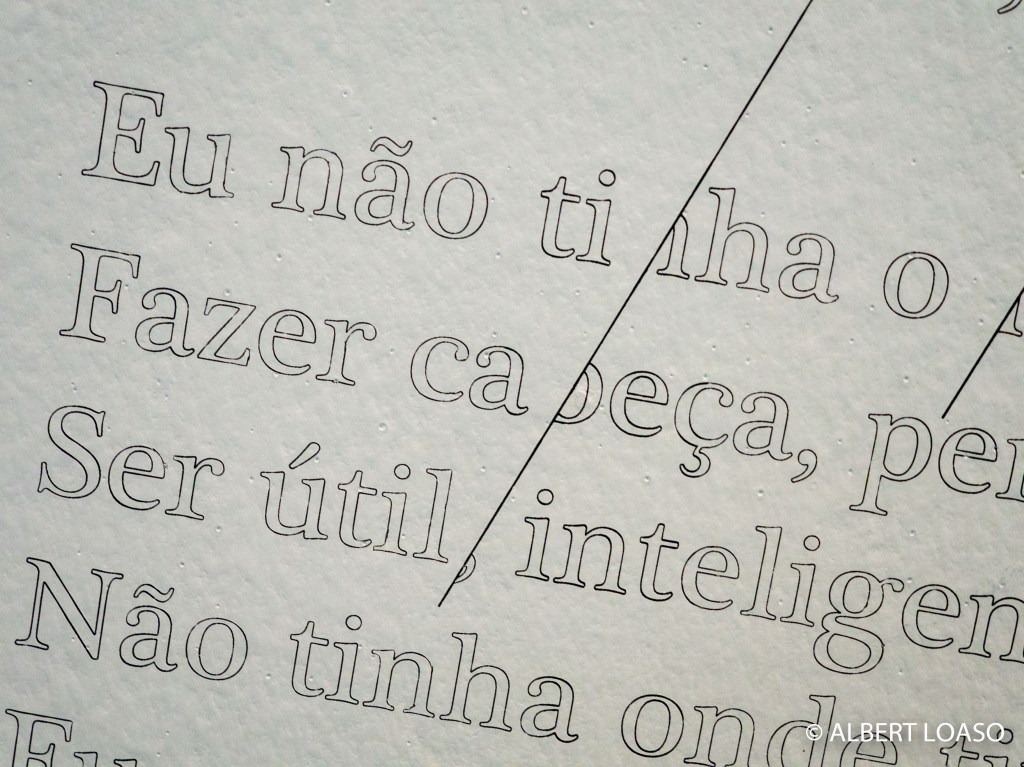 Eu não tinha o
Fazer cabeça, per
Ser útil, inteligen
Não tinha onde ti
Eu
© ALBERT LOASO